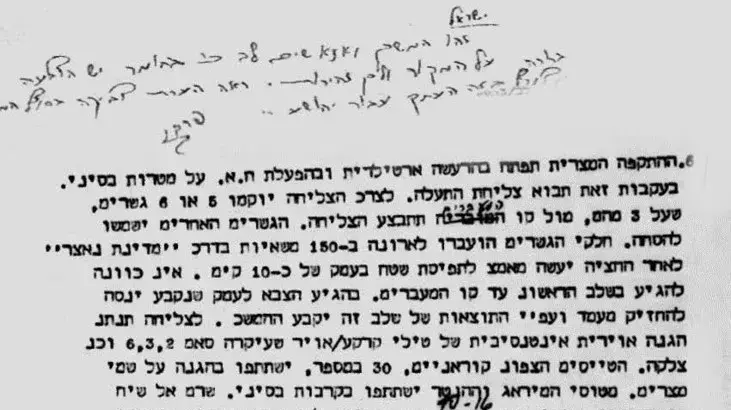 ישראל
זהו המשכן ואנא שים לב כי בחומר יש הצבעה
ברורה על המקור ולכן זהירות. ראה הערת
בזה העתק עבור יהושע
6. ההתקפה המצרית תפתח בהרעשה ארטילרית ובהפעלת ח.א. על מטרות בסיני.
בעקבות זאת תבוא צליחת התעלה. לצרכ הצליחה יוקמו 5 או 6 גשרים,
שעל 3 מהם, מול קו המעברים תתבצע הצליחה. הגשרים האחרים ישמשו
להסחה. חלקי הגשרים הועברו לארונה ב-150 משאיות בדרכ יימדינת נאצריי
לאחר החציה יעשה מאמצ לתפיסת שטח בעמק של כ-10 קים . אינ כוונה
להגיע בשלב הראשונ עד קו המעברים. בהגיע הצבא לעמק שנקבע ינסה
להחזיק מעמד ועפיי התוצאות של שלב זה יקבע ההמשכ . לצליחה תנתנ
הגנה אוירית אינטנסיבית של טילי קרקע/אויר שעיקרה סאמ 6,3,2 וכנ
צלקה. הטייסים הצפונ קוראניים, 30 במספר, ישתתפו בהגנה על שמי
מצרים. מטוסי המיראג וההנטר ישתתפו בקרבות בסיני. שרמ אל שיח